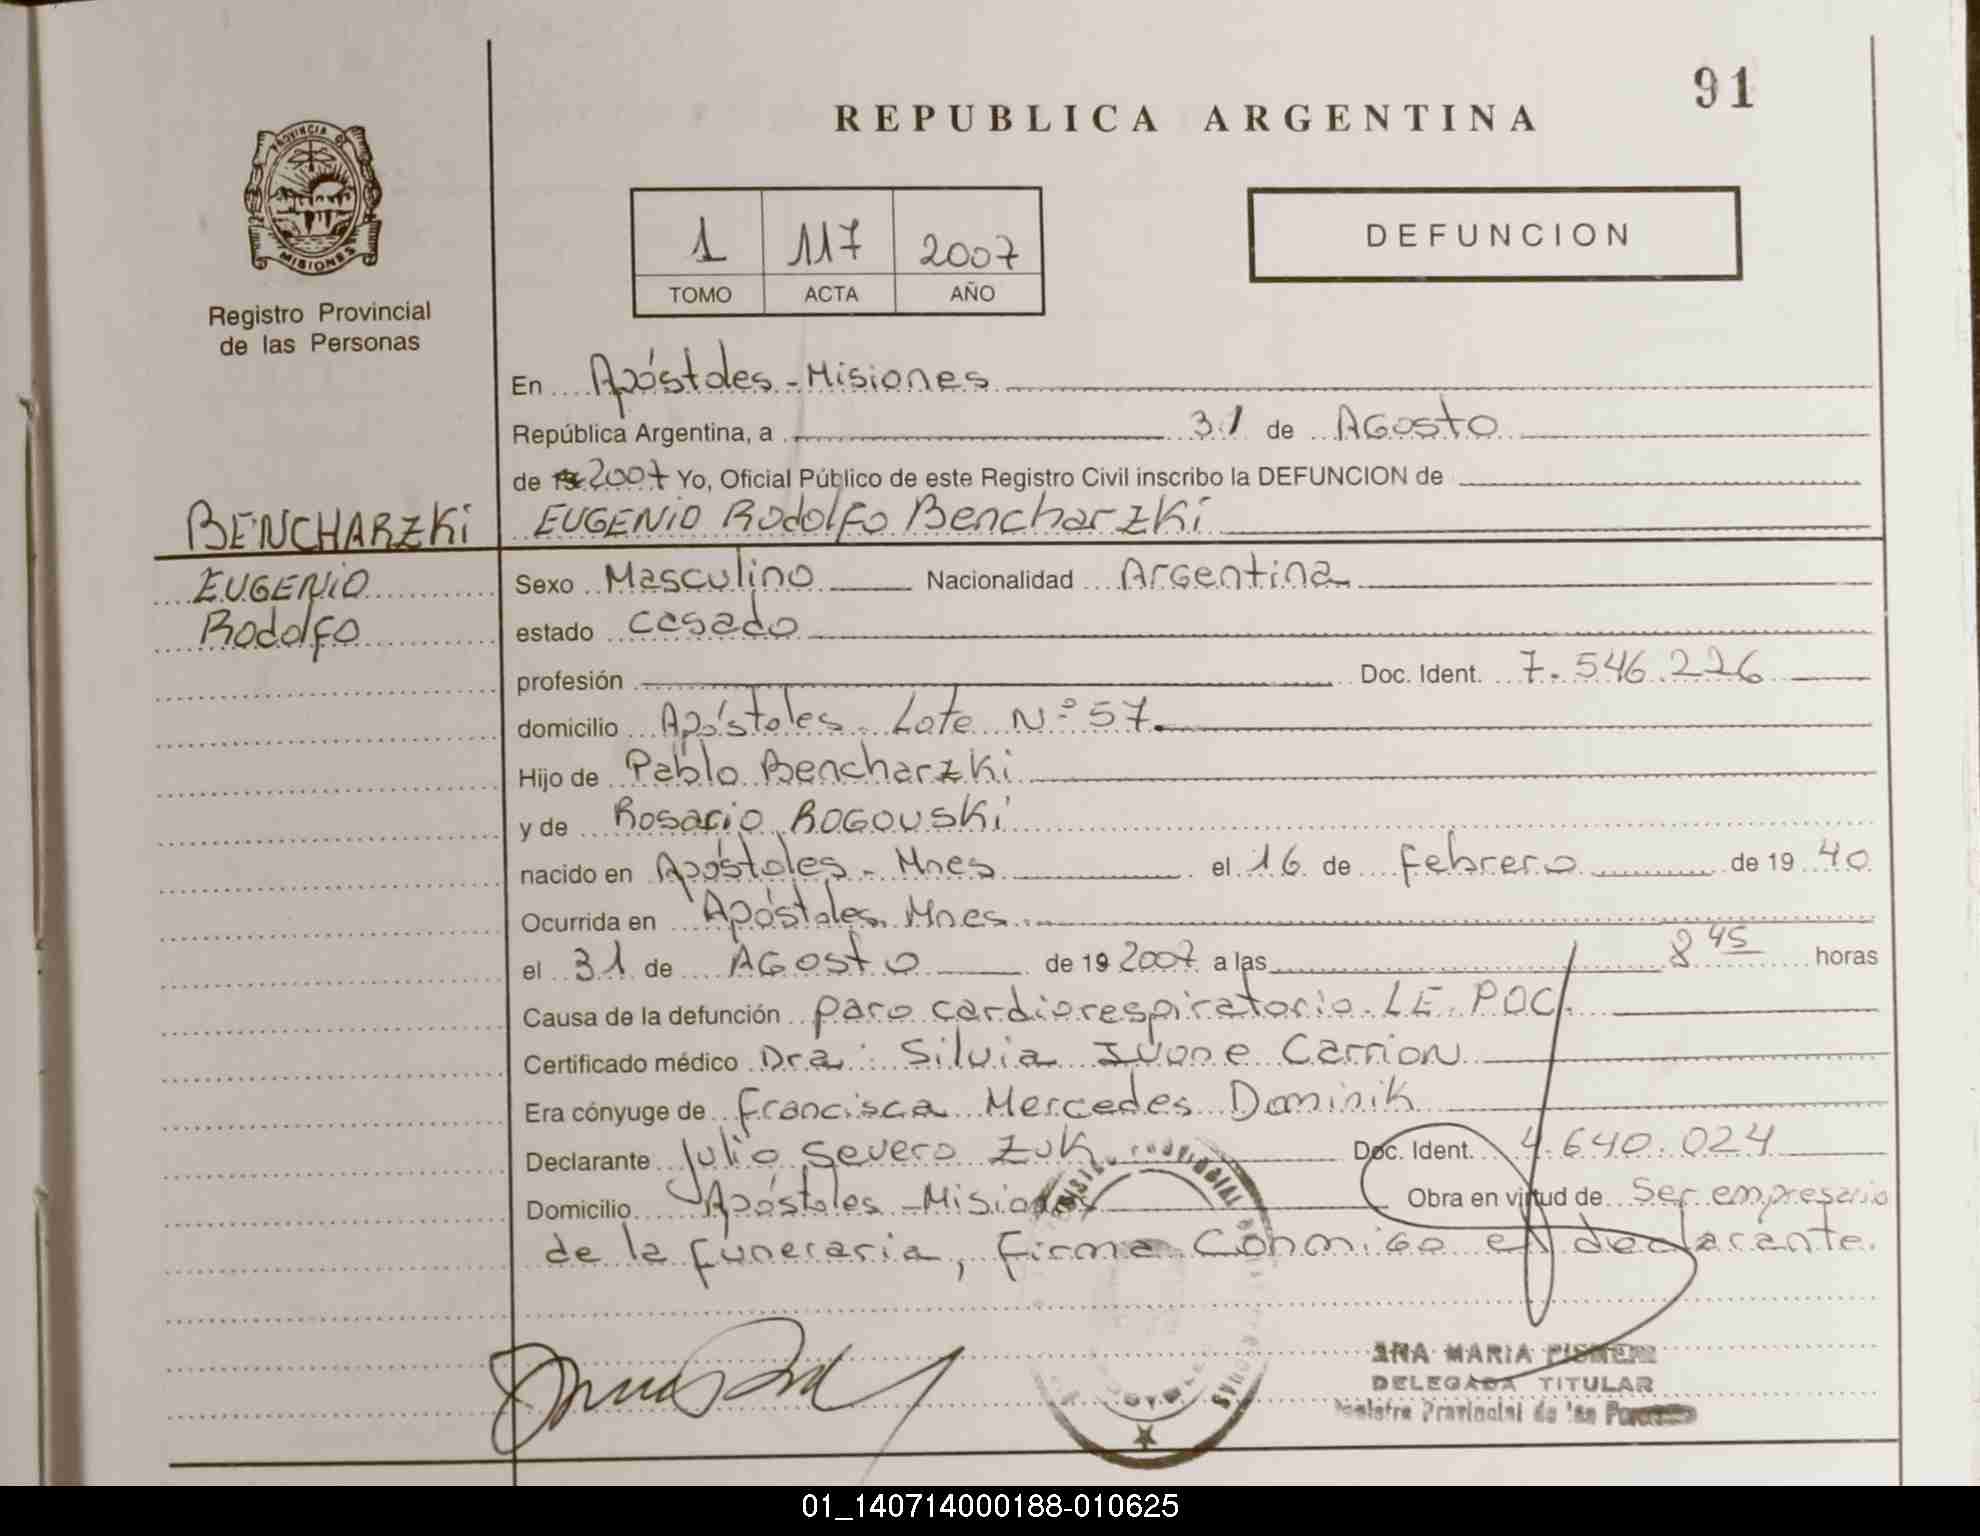 91
REPUBLICA ARGENTINA
PROVINCIA DE
MISIONES
Registro Provincial
de las Personas
1 117 2007
TOMO ACTA AÑO
DEFUNCION
En Apóstoles - Misiones
República Argentina, a 31 de Agosto
de 2007 Yo, Oficial Público de este Registro Civil inscribo la DEFUNCION de
BENCHARZKi
EUGENIO Rodolfo Bencharzki
EUGENIO
Rodolfo
Sexo Masculino Nacionalidad Argentina
estado casado
profesión Doc. Ident. 7.546.226
domicilio Apóstoles - Lote Nº 57.
Hijo de Pablo Bencharzki
y de Rosario Rogouski
nacido en Apóstoles - Mnes el 16 de febrero de 1940
Ocurrida en Apóstoles Mnes
el 31 de Agosto de 19 2007 a las 8 45 horas
Causa de la defunción paro cardiorespiratorio. LE. POC.
Certificado médico Dra. Silvia Ivone Carrion
Era cónyuge de Francisca Mercedes Dominik
Declarante Julio Severo Zuk Doc. Ident. 4.640.024
Domicilio Apóstoles - Misiones Obra en virtud de Ser empresario
de la funeraria, firma conmigo el declarante.
ANA MARIA
DELEGADA TITULAR
Registro Provincial de las
01_140714000188-010625